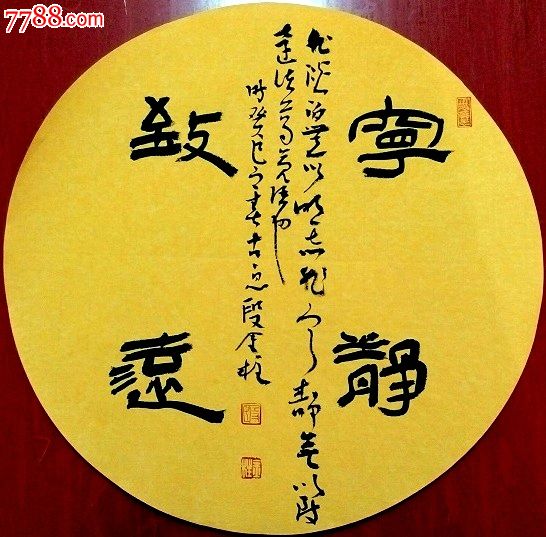 7788.com
寧靜
非澹泊無以明志非寧靜無以致
遠
時癸巳之春古段金柱
致遠